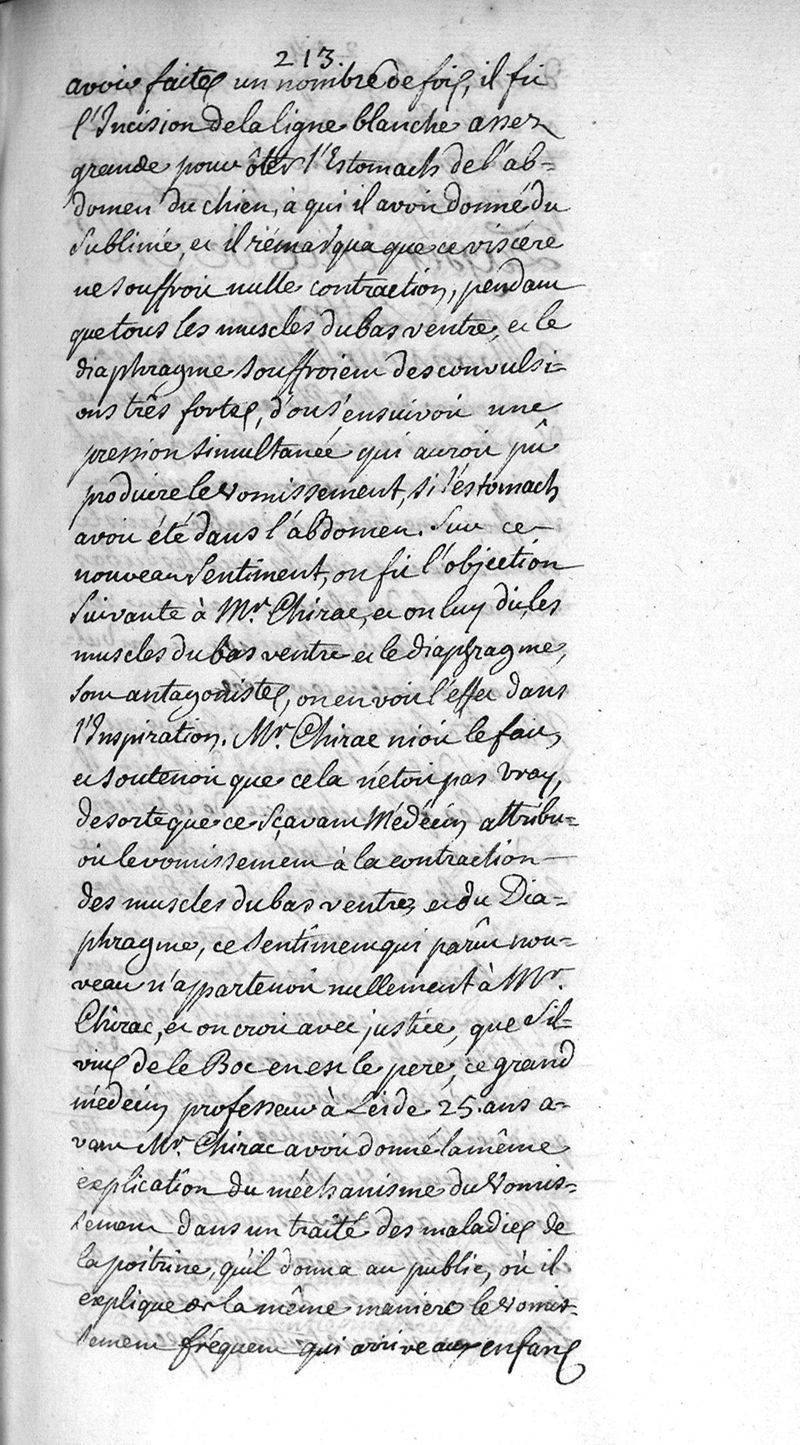 213.
avoit faites un nombre de fois, il fit
l'Incision de la ligne blanche assez
grande pour ôter l'Estomach de l'ab=
domen du chien, à qui il avoit donné du
Sublimé, et il rémarqua que ce viscére
ne souffroit nulle contraction, pendant
que tous les muscles du bas ventre, et le
diaphragme souffroient des convulsi=
ons trés fortes, d'ou s'ensuivoit une
pression simultanée qui auroit pû
produire le vomissement, si l'éstomach
avoit été dans l'abdomen. Sur ce
nouveau sentiment, on fit l'objection
suivante à Mr. Chirac, et on luy dit, les
muscles du bas ventre et le diaphragme,
sont antagonistes, on en voit l'effet dans
l'Inspiration. Mr. Chirac nioit le fait,
et soutenoit que cela n'étoit pas vray,
de sorte que ce sçavant Médécin attribu=
oit le vomissement à la contraction
des muscles du bas ventre, et du Dia=
phragme, ce sentiment qui parût nou=
veau n'appartenoit nullement à Mr.
Chirac, et on croit avec justice, que Sil=
vius de le Boc en est le pere, ce grand
médecin professeur à Leide 25. ans a=
vant Mr. Chirac avoit donné la même
explication du méchanisme du vomis=
sement dans un traité des maladies de
la poitrine, qu'il donna au public, où il
explique de la même maniere le vomis=
sement fréquent qui arrive aux enfans